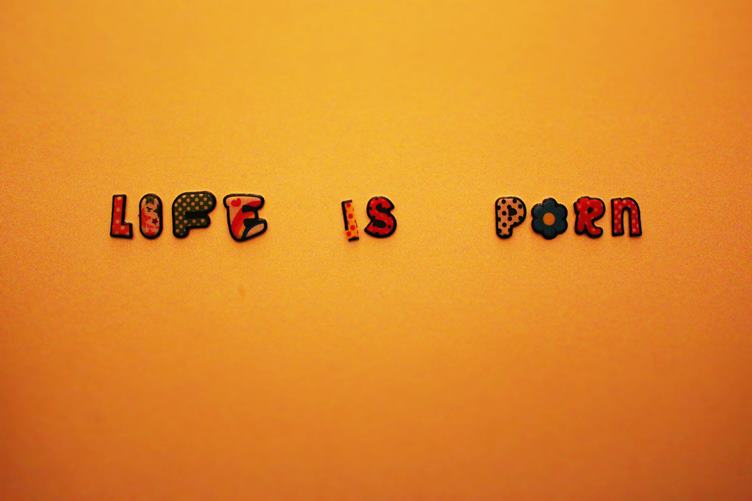 LIFE IS PORN